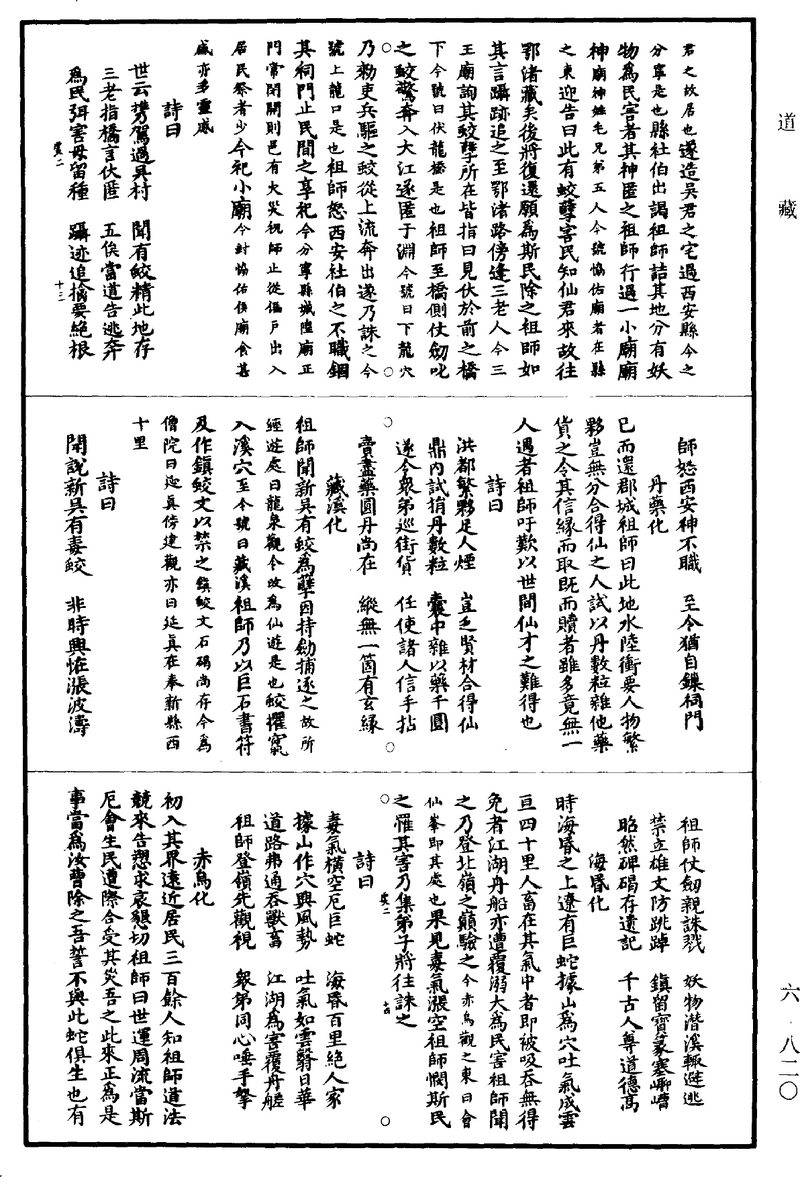 道藏
六·八二〇
君之故居也遂造吳君之宅過西安縣今之
分寧是也縣社伯出謁祖師詰其地分有妖
物為民害者其神匿之祖師行過一小廟廟
神廟神姓毛兄弟五人今號恊佑廟者在縣
之東迎告曰此有蛟孽害民知仙君來故往
鄂渚藏矣後將復還願為斯民除之祖師如
其言躡跡追之至鄂渚路傍逢三老人今三
王廟詢其蛟孽所在皆指曰見伏於前之橋
下今號曰伏龍橋是也祖師至橋側仗劒叱
之蛟驚奔入大江遂匿于淵今號曰下龍穴
乃勑吏兵驅之蛟從上流奔出遂乃誅之今
號上龍口是也祖師怒西安社伯之不職錮
其祠門止民間之享祀今分寧縣城隍廟正
門常閉開則邑有火災祝師止從偏戶出入
居民祭者少今祀小廟今封恊佑侯廟食甚
盛亦多靈感
詩曰
世云携駕過吳村　聞有蛟精此地存
三老指橋言伏匿　五侯當道告逃奔
為民弭害毋留種　躡迹追擒要絕根
虞二　十三
師怒西安神不職　至今猶自鏁祠門
丹藥化
已而還郡城祖師曰此地水陸衝要人物繁
夥豈無分合得仙之人試以丹數粒雜他藥
貨之令其信緣而取既而贖者雖多竟無一
人遇者祖師吁歎以世間仙才之難得也
詩曰
洪都繁夥足人煙　豈乏賢材合得仙
鼎內試捐丹數粒　囊中雜以藥千圓
遂令衆弟巡街貨　任使諸人信手拈
賣盡藥圓丹尚在　縱無一箇有玄緣
藏溪化
祖師聞新吳有蛟為孽因持劒捕逐之故所
經遊處曰龍泉觀今改為仙遊是也蛟擢竄
入溪穴至今號曰藏溪祖師乃以巨石書符
及作鎮蛟文以禁之鎮蛟文石碣尚存今為
僧院曰延真傍建觀亦曰延真在奉新縣西
十里
詩曰
聞說新吳有毒蛟　非時興怪漲波濤
祖師仗劒親誅戮　妖物潛溪輙遯逃
禁立雄文防跳踔　鎮留寶篆塞啣嘈
昭然碑碣存遺記　千古人尊道德高
海昬化
時海昬之上遼有巨蛇據山為穴吐氣成雲
亘四十里人畜在其氣中者即被吸吞無得
免者江湖舟船亦遭覆溺大為民害祖師聞
之乃登北嶺之巔驗之今赤烏觀之東曰會
仙峯即其處也果見毒氣漲空祖師憫斯民
之罹其害乃集弟子將往誅之
虞二　十四
詩曰
毒氣橫空厄巨蛇　海昬百里絕人家
據山作穴興風勢　吐氣如雲翳日華
道路弗通吞獸畜　江湖為害覆舟艖
祖師登嶺先觀視　衆弟同心唾手拏
赤烏化
初入其界遠近居民三百餘人知祖師道法
競來告愬求哀懇切祖師曰世運周流當斯
厄會生民遭際合受其災吾之此來正為是
事當為汝曹除之吾誓不與此蛇俱生也有